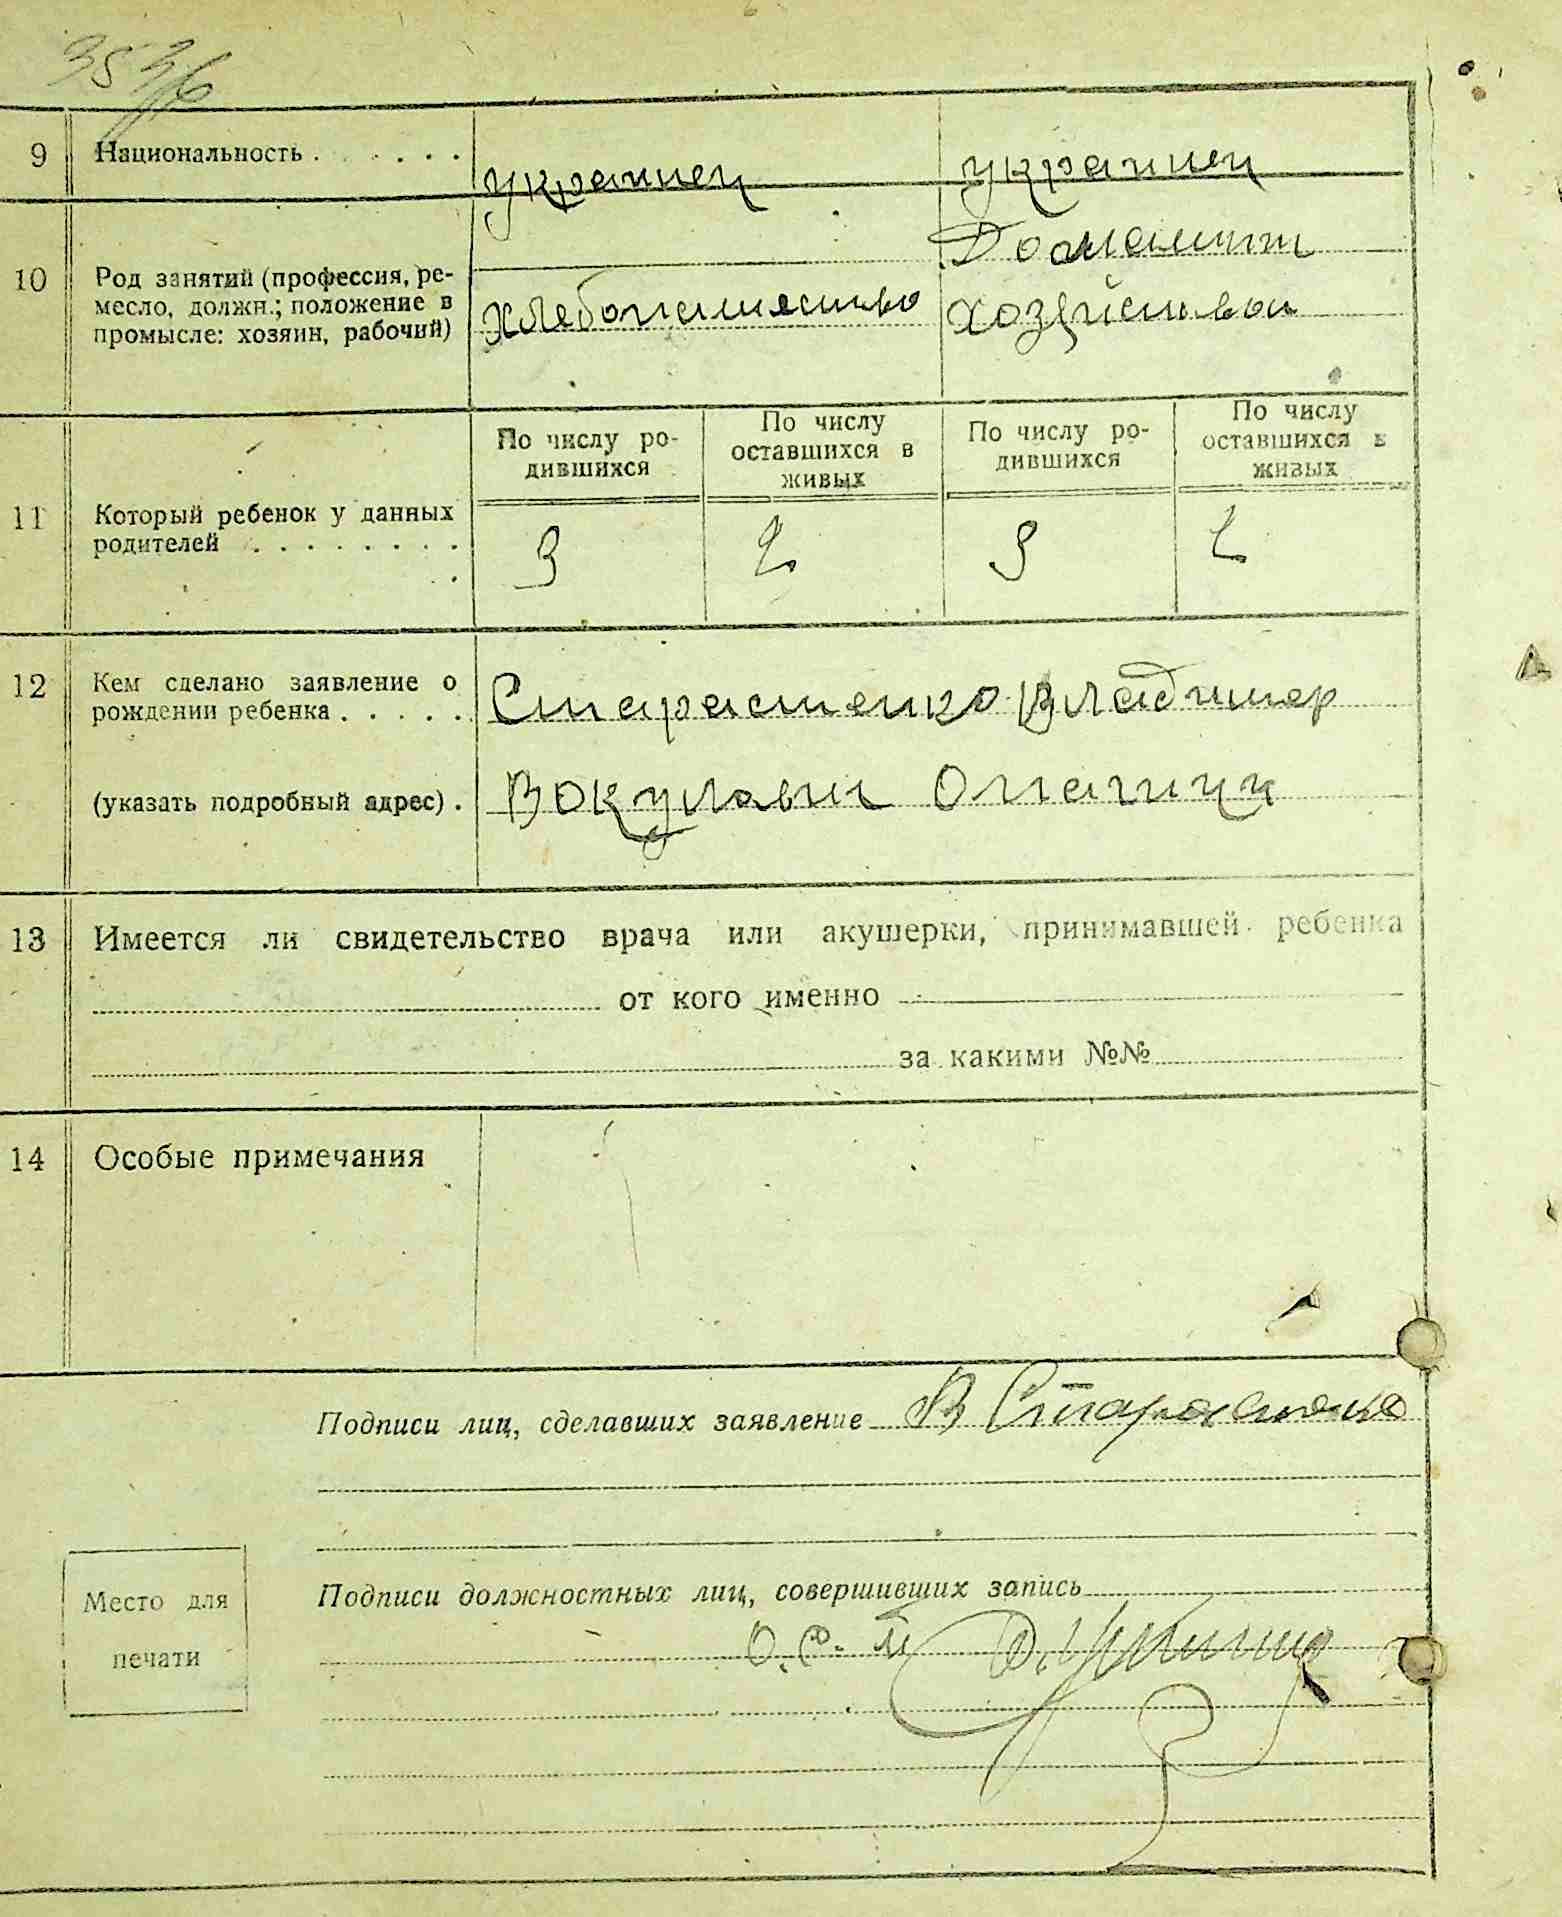 9 Национальность . . . . . . украинец украинец
10 Род занятий (профессия, ре-
месло, должн.; положение в
промысле: хозяин, рабочий)
хлебопашество
Домашн
хозяйствои
11 Который ребенок у данных
родителей . . . . . . . .
По числу ро-
дившихся
По числу
оставшихся в
живых
По числу ро-
дившихся
По числу
оставшихся в
живых
3 2 3 2
12 Кем сделано заявление о
рождении ребенка . . . . .
(указать подробный адрес) .
Старастенко Владимер
Вокулавич
13 Имеется ли свидетельство врача или акушерки, принимавшей ребенка
от кого именно
за какими №№
14 Особые примечания
Подписи лиц, сделавших заявление В Старастенко
Подписи должностных лиц, совершивших запись
Место для
печати